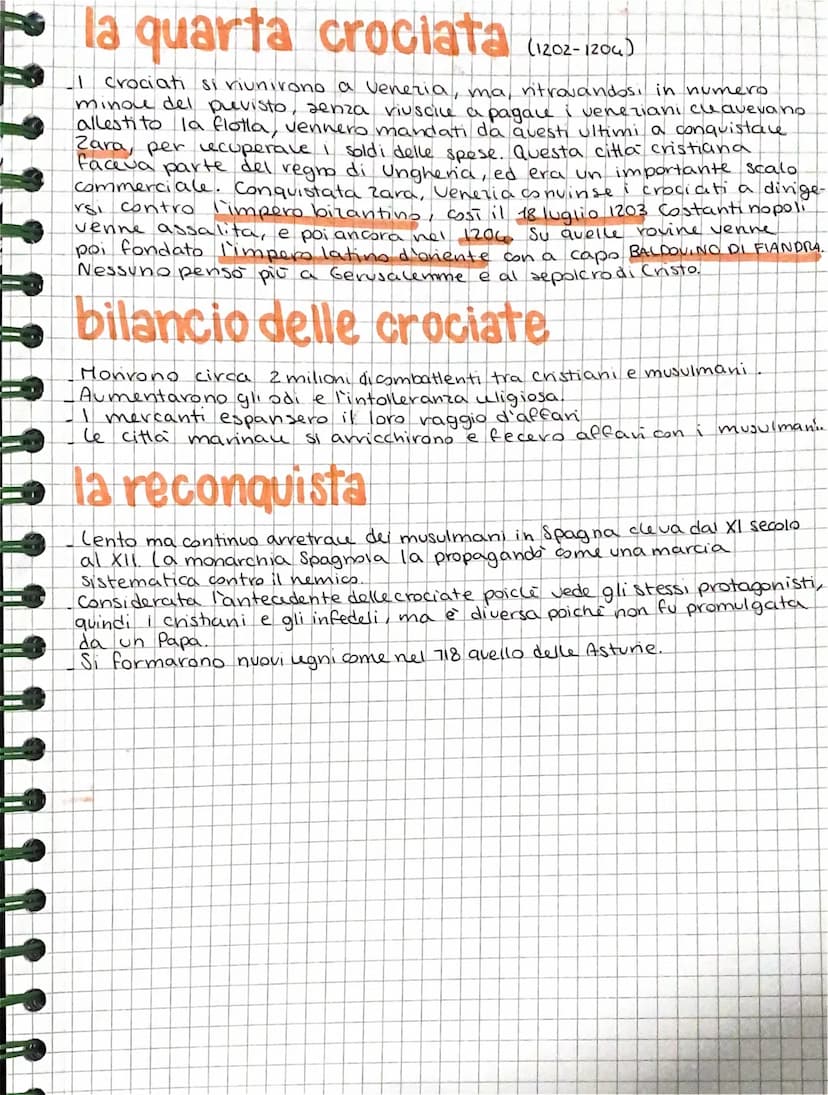 la quarta crociata (1202-1204)
- I crociati si riunirono a Venezia, ma, ritrovandosi in numero
minore del previsto, senza riuscire a pagare i veneziani che avevano
allestito la flotta, vennero mandati da questi ultimi a conquistare
Zara, per recuperare i soldi delle spese. Questa città cristiana
faceva parte del regno di Ungheria, ed era un importante scalo
commerciale. Conquistata Zara, Venezia convinse i crociati a dirige-
rsi contro l'impero bizantino, così il 18 luglio 1203 Costantinopoli
venne assalita, e poi ancora nel 1204. Su quelle rovine venne
poi fondato l'impero latino d'oriente con a capo BALDOVINO DI FIANDRA.
Nessuno pensò più a Gerusalemme e al sepolcro di Cristo.
bilancio delle crociate
- Morirono circa 2 milioni di combattenti tra cristiani e musulmani.
- Aumentarono gli odi e l'intolleranza religiosa.
- I mercanti espansero il loro raggio d'affari
- Le città marinare si arricchirono e fecero affari con i musulmani.
la reconquista
- Lento ma continuo arretrare dei musulmani in Spagna che va dal XI secolo
al XII. La monarchia Spagnola la propagandò come una marcia
sistematica contro il nemico.
- Considerata l'antecedente delle crociate poichè vede gli stessi protagonisti,
quindi i cristiani e gli infedeli, ma è diversa poichè non fu promulgata
da un Papa.
- Si formarono nuovi regni come nel 718 quello delle Asturie.